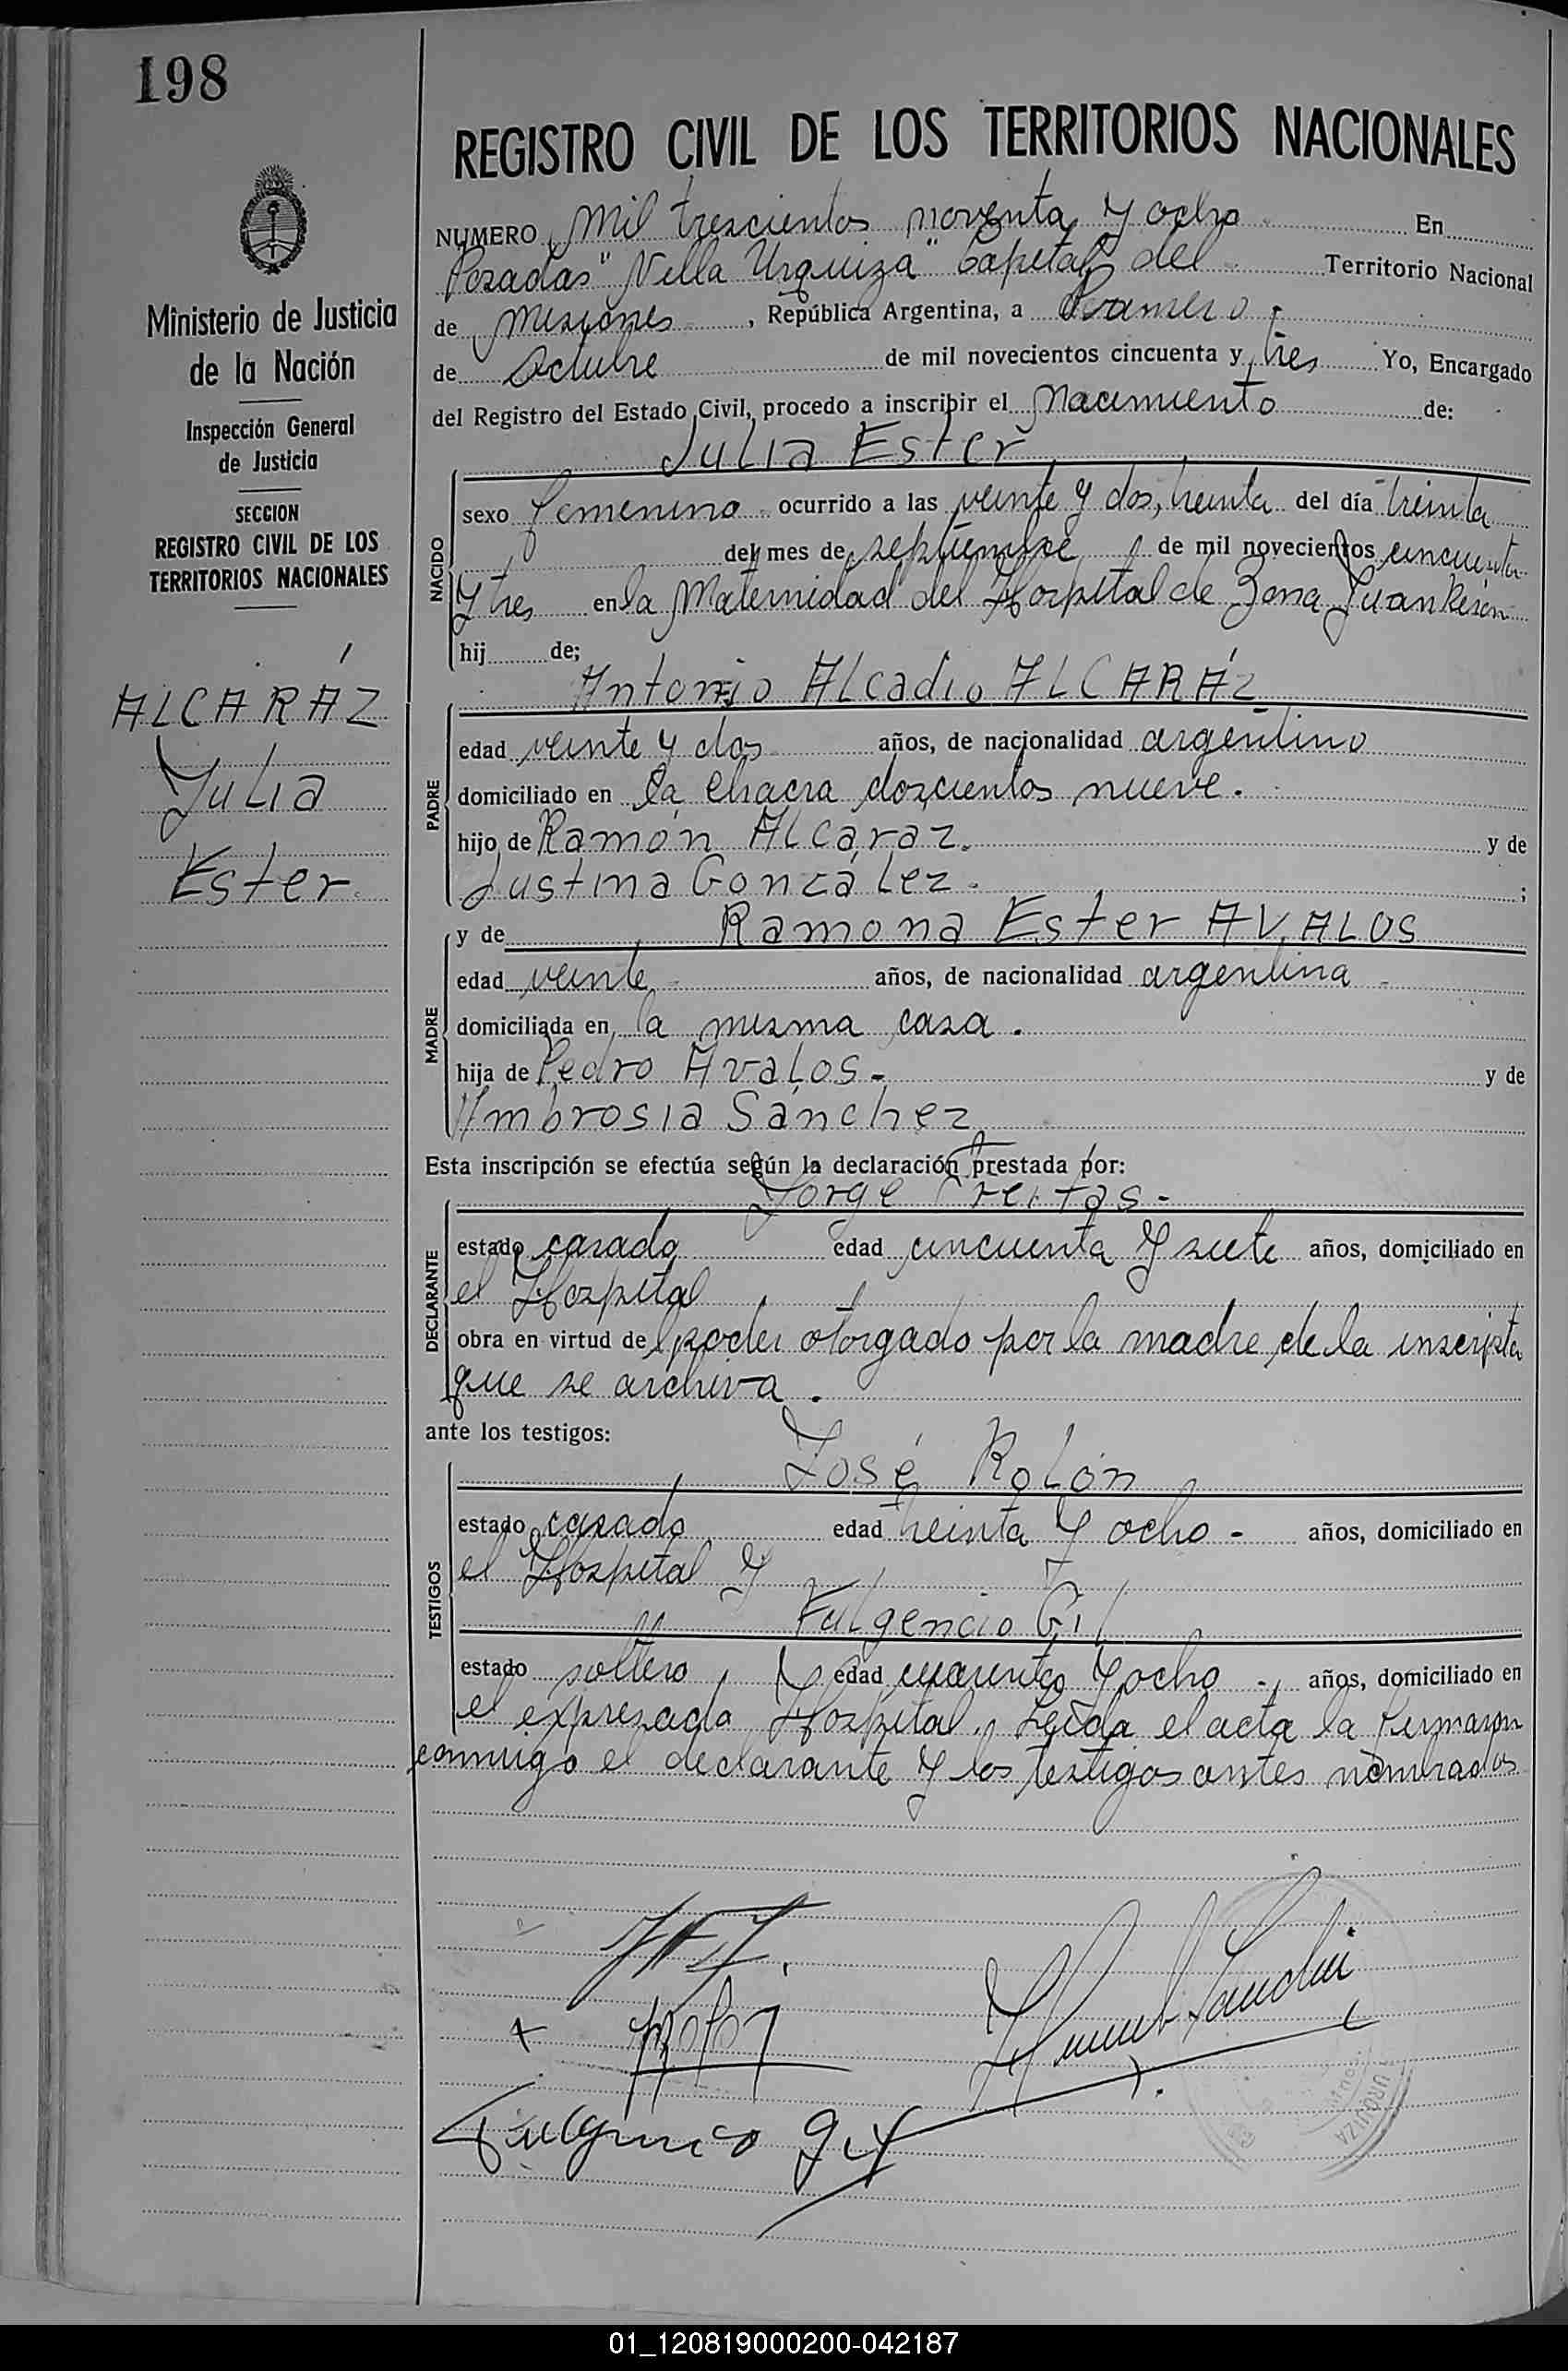 198
REGISTRO CIVIL DE LOS TERRITORIOS NACIONALES
NUMERO Mil trescientos noventa y ocho En
Posadas "Villa Urquiza" Capital del Territorio Nacional
de Misiones, República Argentina, a Primero
de Octubre de mil novecientos cincuenta y tres Yo, Encargado
del Registro del Estado Civil, procedo a inscribir el Nacimiento de:
Julia Ester
NACIDO
sexo femenino ocurrido a las veinte y dos, treinta del día treinta
del mes de septiembre de mil novecientos cincuenta
y tres en la Maternidad del Hospital de Zona Juan Perón
hij de;
Antonio Alcadio ALCARÁZ
PADRE
edad veinte y dos años, de nacionalidad argentino
domiciliado en la chacra doscientos nueve.
hijo de Ramón Alcaraz. y de
Justina González. ;
y de Ramona Ester AVALOS
MADRE
edad veinte años, de nacionalidad argentina
domiciliada en la misma casa.
hija de Pedro Avalos - y de
Ambrosia Sánchez
Esta inscripción se efectúa según la declaración prestada por:
Jorge Freitas -
DECLARANTE
estado casado edad cincuenta y siete años, domiciliado en
el Hospital
obra en virtud del poder otorgado por la madre de la inscripta
que se archiva.
ante los testigos:
José Rolón
TESTIGOS
estado casado edad treinta y ocho - años, domiciliado en
el Hospital y
Fulgencio Gil
estado soltero, y edad cuarenta y ocho -, años, domiciliado en
el expresado Hospital. Leída el acta la firmaron
conmigo el declarante y los testigos antes nombrados
Rolon
Fulgencio Gil
URQUIZA
Ministerio de Justicia
de la Nación
Inspección General
de Justicia
SECCION
REGISTRO CIVIL DE LOS
TERRITORIOS NACIONALES
ALCARÁZ
Julia
Ester
01_120819000200-042187